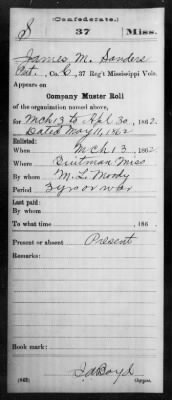 (Confederate.)
S 37 Miss.
James M. Sanders
Pvt., Co. C, 37 Reg't Mississippi Vols.
Appears on
Company Muster Roll
of the organization named above,
for Mch 13 to Apl 30, 1862.
Dated May 11, 1862
Enlisted:
When Mch 13, 1862
Where Quitman Miss
By whom M. L. Moody
Period 3 yrs or war
Last paid:
By whom
To what time , 186 .
Present or absent Present
Remarks:
Book mark:
(642) J A Boyd
Copyist.